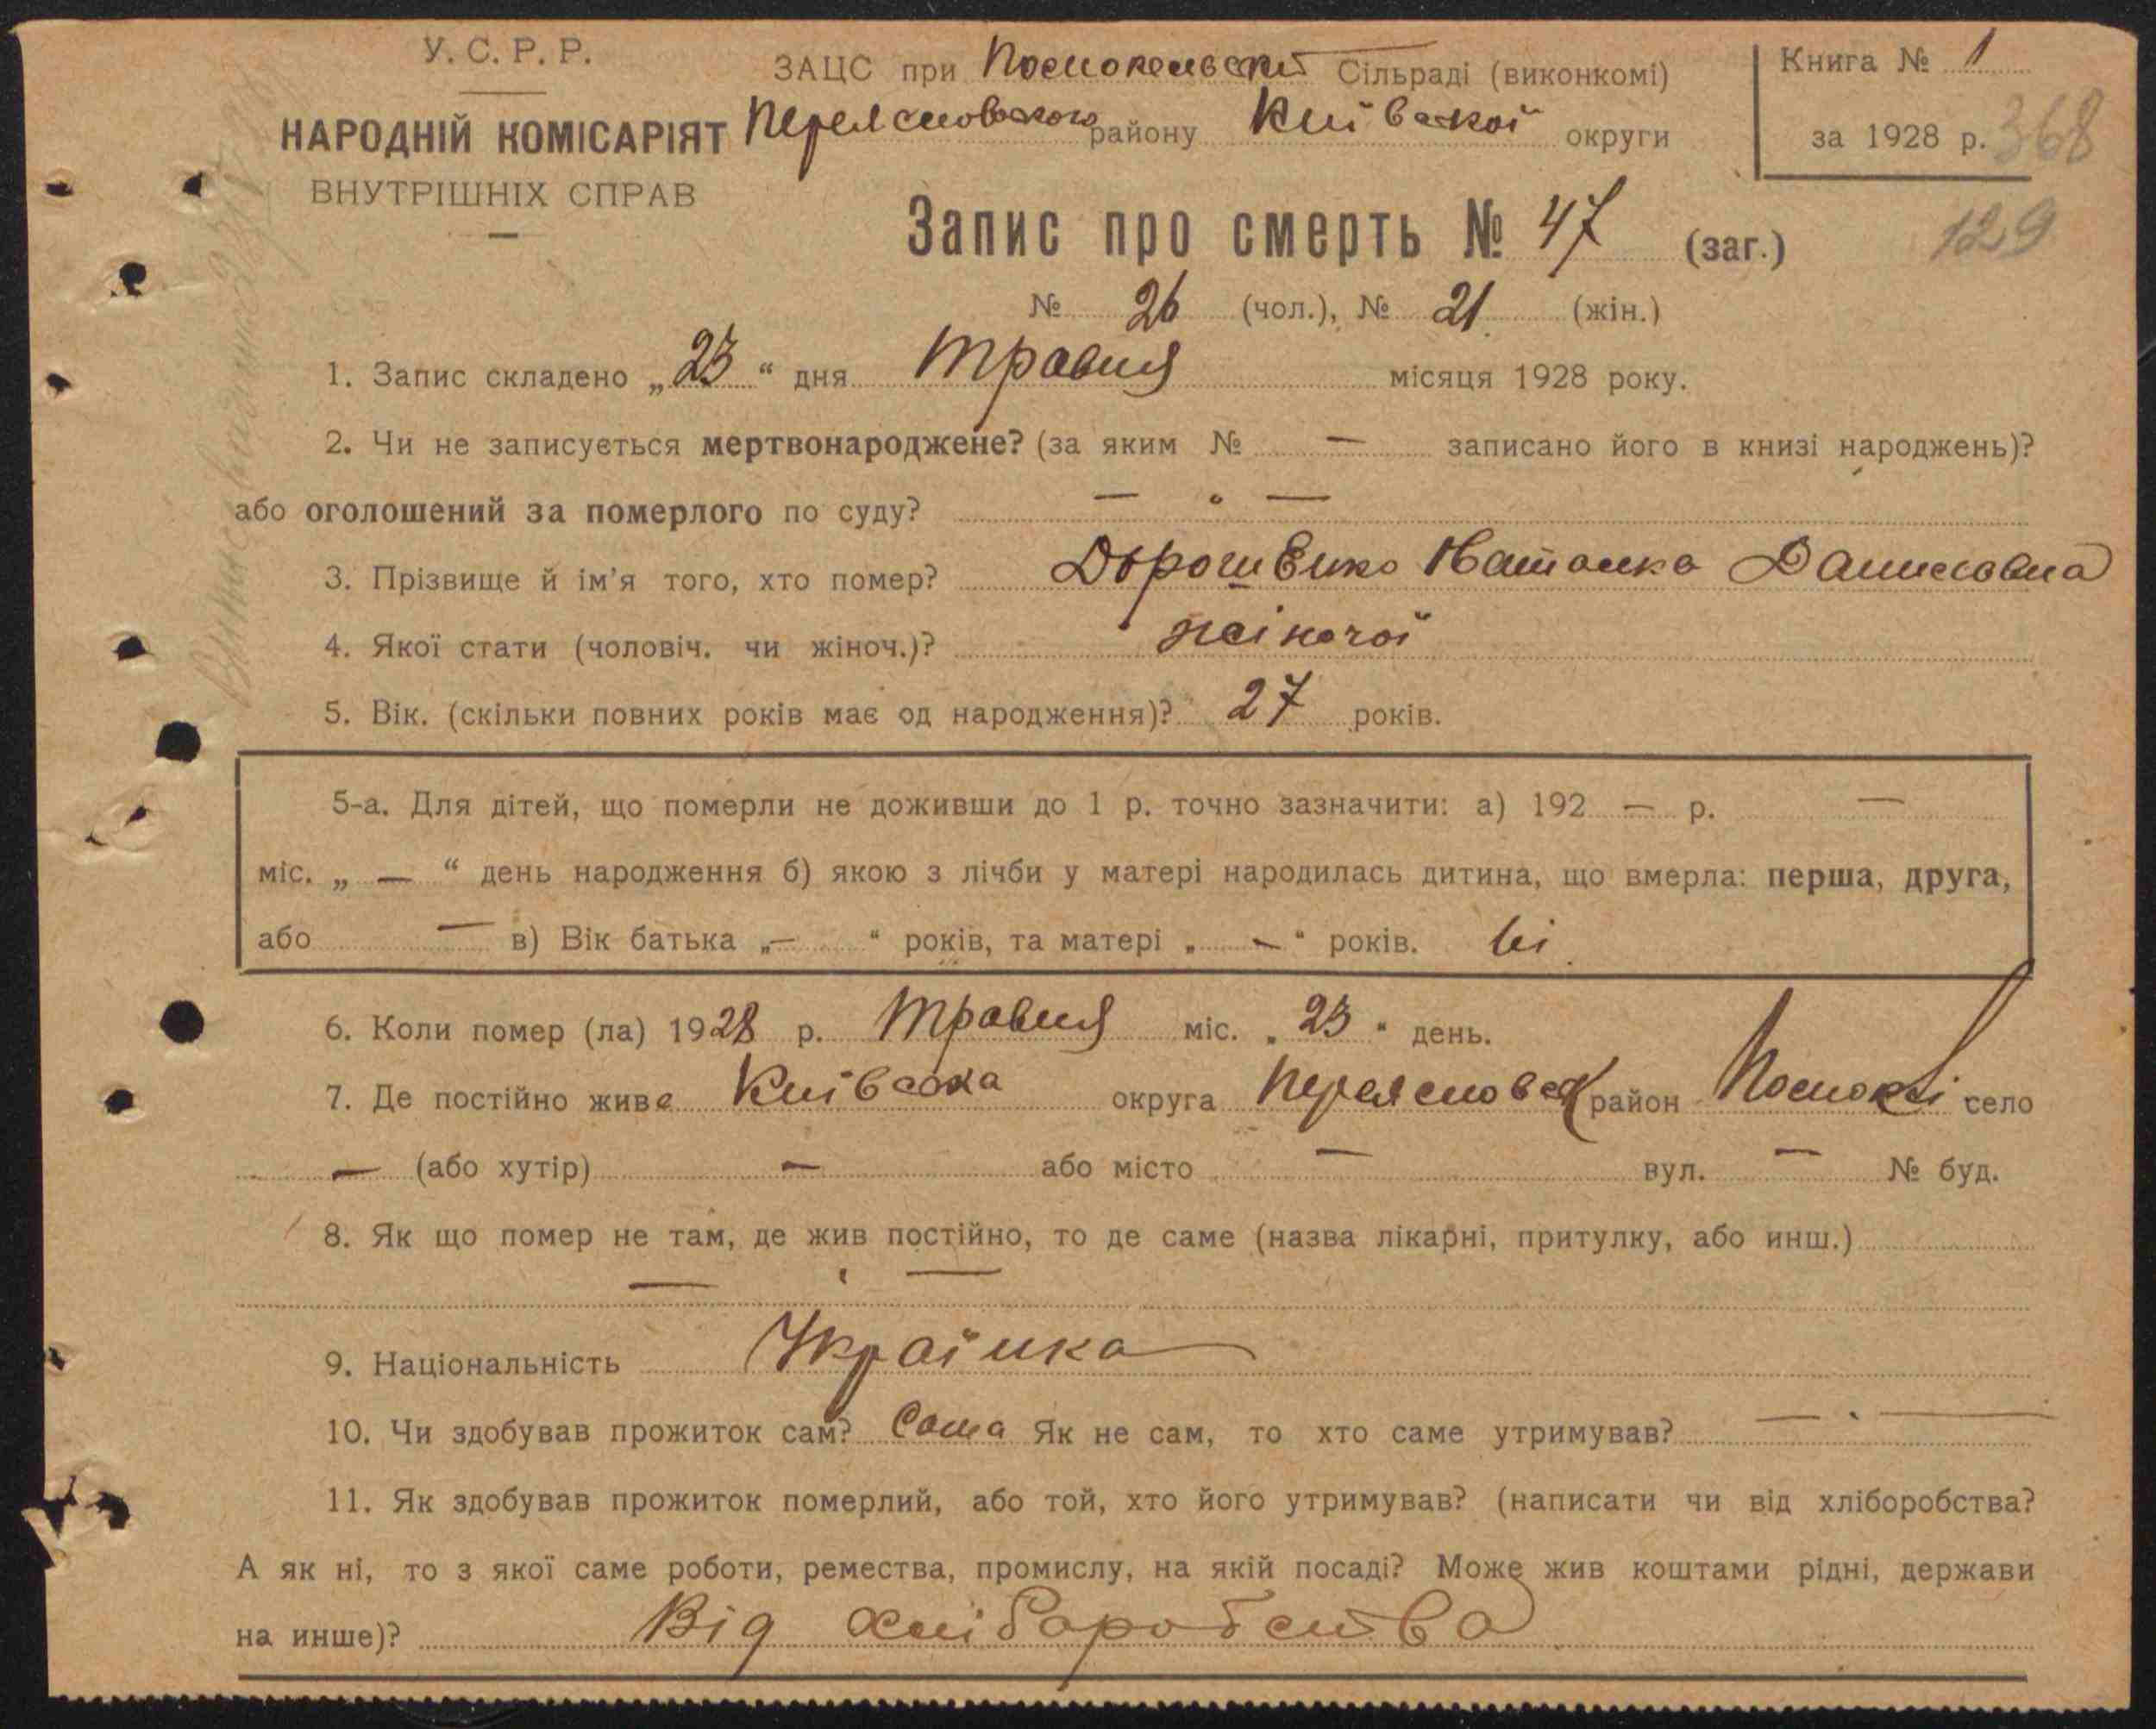 У. С. Р. Р.
НАРОДНІЙ КОМІСАРІЯТ
ВНУТРІШНІХ СПРАВ
ЗАЦС при Сільраді (виконкомі)
району Київской округи
Книга № 1
за 1928 р. 368
129
Запис про смерть № 47 (заг.)
№ 26 (чол.), № 21 (жін.)
1. Запис складено „ 23 “ дня Травня місяця 1928 року.
2. Чи не записується мертвонароджене? (за яким № — записано його в книзі народжень)?
або оголошений за померлого по суду? — „ —
3. Прізвище й ім'я того, хто помер? Дорошенко Наталка Даниловна
4. Якої стати (чоловіч. чи жіноч.)? жіночої
5. Вік. (скільки повних років має од народження)? 27 років.
5-а. Для дітей, що померли не доживши до 1 р. точно зазначити: а) 192 — р. —
міс. „ — “ день народження б) якою з лічби у матері народилась дитина, що вмерла: перша, друга,
або — в) Вік батька „ — “ років, та матері „ — “ років.
6. Коли помер (ла) 1928 р. Травня міс. „ 23 “ день.
7. Де постійно живе Київська округа район село
— (або хутір) — або місто — вул. — № буд.
8. Як що помер не там, де жив постійно, то де саме (назва лікарні, притулку, або инш.)
— „ —
9. Національність Українка
10. Чи здобував прожиток сам? Сама Як не сам, то хто саме утримував? — „ —
11. Як здобував прожиток померлий, або той, хто його утримував? (написати чи від хліборобства?
А як ні, то з якої саме роботи, ремества, промислу, на якій посаді? Може жив коштами рідні, держави
на инше)? Від хліборобства